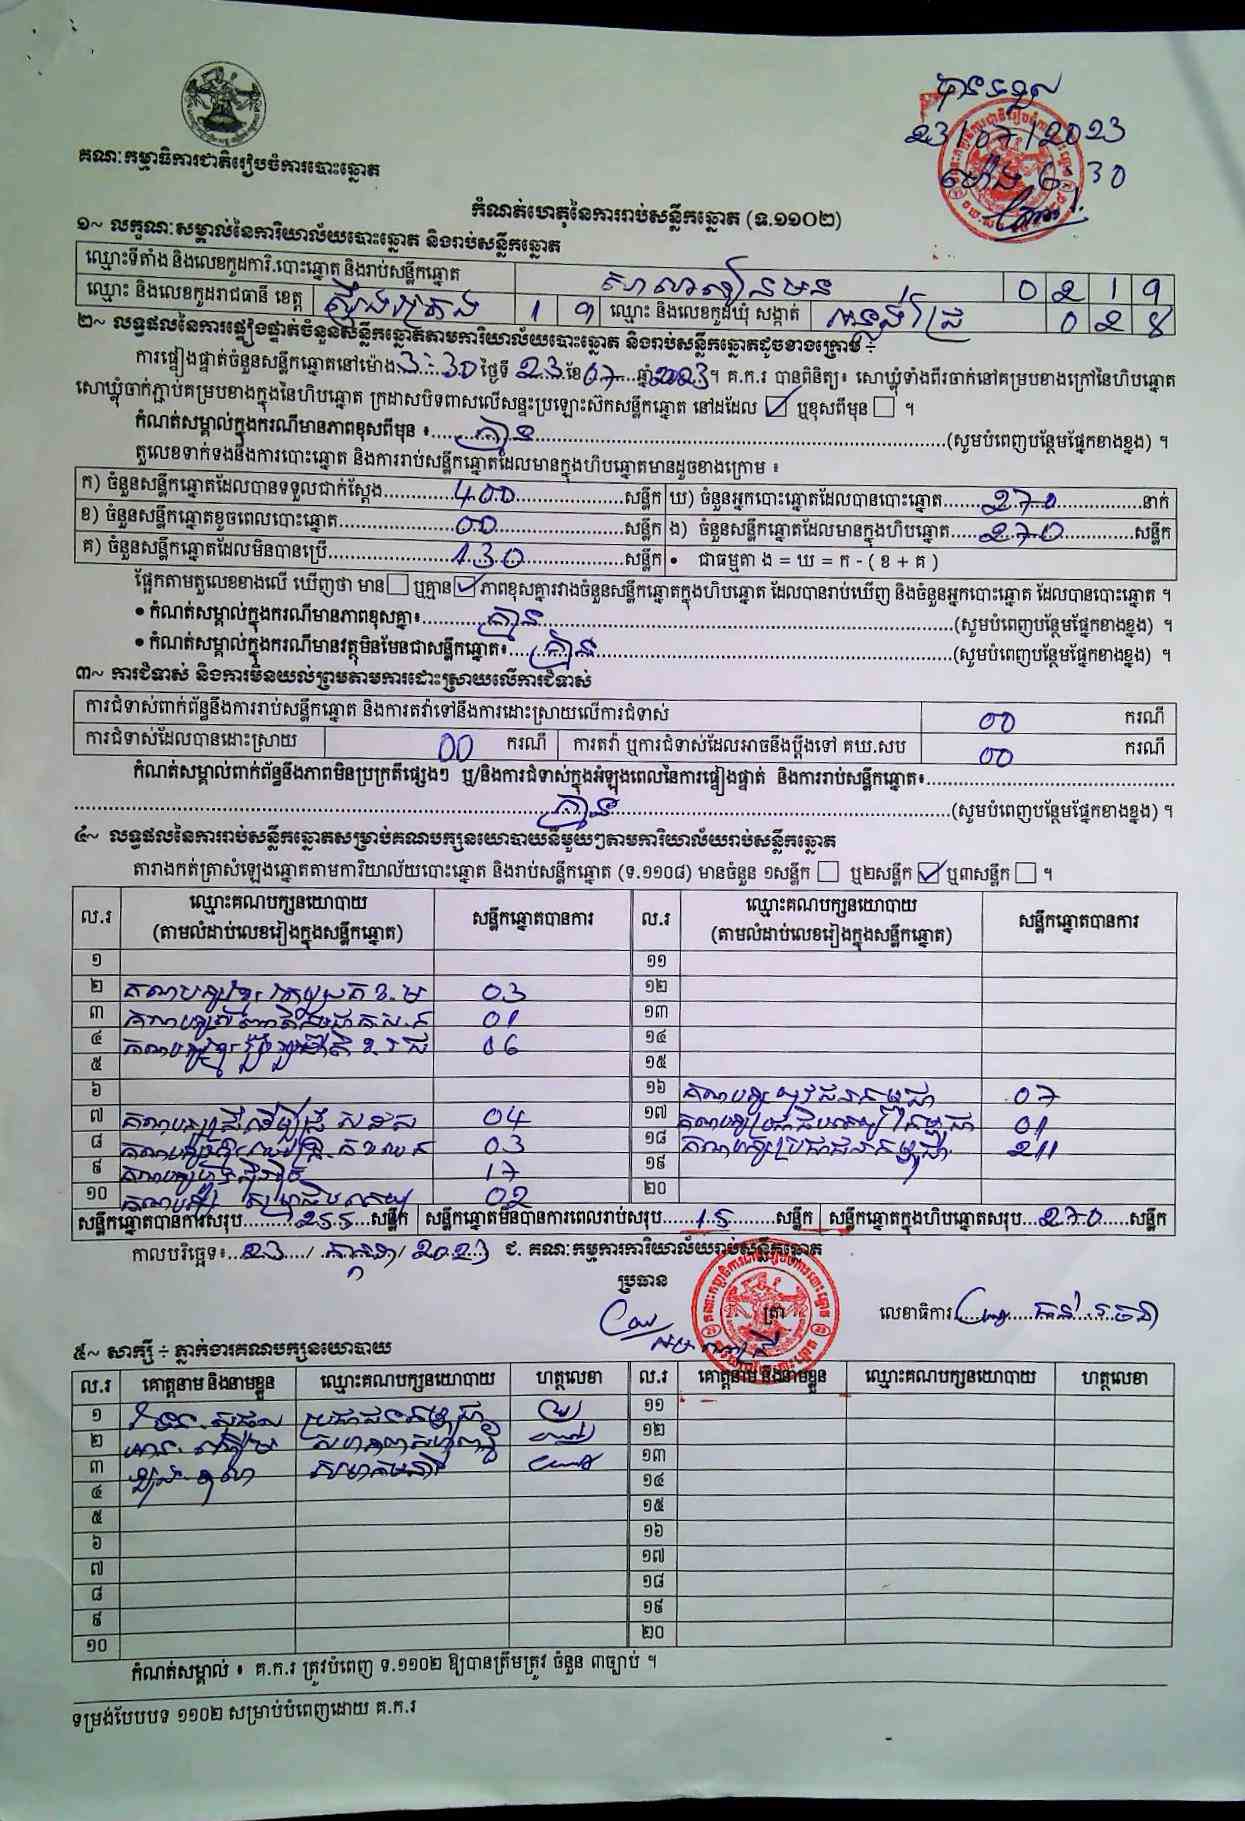 បានទទួល
23/07/2023
ម៉ោង 6:30
គណៈកម្មាធិការជាតិរៀបចំការបោះឆ្នោត
កំណត់ហេតុនៃការរាប់សន្លឹកឆ្នោត (ទ.១១០២)
១~ លក្ខណៈសម្គាល់នៃការិយាល័យបោះឆ្នោត និងរាប់សន្លឹកឆ្នោត
ឈ្មោះទីតាំង និងលេខកូដការិ.បោះឆ្នោត និងរាប់សន្លឹកឆ្នោត 0 2 1 9
ឈ្មោះ និងលេខកូដរាជធានី ខេត្ត ស្ទឹងត្រែង 1 9 ឈ្មោះ និងលេខកូដឃុំ សង្កាត់ 0 2 8
២~ លទ្ធផលនៃការផ្ទៀងផ្ទាត់ចំនួនសន្លឹកឆ្នោតតាមការិយាល័យបោះឆ្នោត និងរាប់សន្លឹកឆ្នោតដូចខាងក្រោម ÷
ការផ្ទៀងផ្ទាត់ចំនួនសន្លឹកឆ្នោតនៅម៉ោង 3:30 ថ្ងៃទី 23 ខែ 07 ឆ្នាំ 2023 ។ គ.ក.រ បានពិនិត្យ៖ សោឃ្លុំទាំងពីរចាក់នៅគម្របខាងក្រៅនៃហិបឆ្នោត
សោឃ្លុំចាក់ភ្ជាប់គម្របខាងក្នុងនៃហិបឆ្នោត ក្រដាសបិទពាសលើសន្ទះប្រឡោះស៊កសន្លឹកឆ្នោត នៅដដែល ☑ ឬខុសពីមុន ☐ ។
កំណត់សម្គាល់ក្នុងករណីមានភាពខុសពីមុន ៖ គ្មាន (សូមបំពេញបន្ថែមផ្នែកខាងខ្នង) ។
តួលេខទាក់ទងនឹងការបោះឆ្នោត និងការរាប់សន្លឹកឆ្នោតដែលមានក្នុងហិបឆ្នោតមានដូចខាងក្រោម ៖
ក) ចំនួនសន្លឹកឆ្នោតដែលបានទទួលជាក់ស្តែង 400 សន្លឹក ឃ) ចំនួនអ្នកបោះឆ្នោតដែលបានបោះឆ្នោត 270 នាក់
ខ) ចំនួនសន្លឹកឆ្នោតខូចពេលបោះឆ្នោត 00 សន្លឹក ង) ចំនួនសន្លឹកឆ្នោតដែលមានក្នុងហិបឆ្នោត 270 សន្លឹក
គ) ចំនួនសន្លឹកឆ្នោតដែលមិនបានប្រើ 130 សន្លឹក • ជាធម្មតា ង = ឃ = ក - ( ខ + គ )
ផ្អែកតាមតួលេខខាងលើ ឃើញថា មាន ☐ ឬគ្មាន ☑ ភាពខុសគ្នារវាងចំនួនសន្លឹកឆ្នោតក្នុងហិបឆ្នោត ដែលបានរាប់ឃើញ និងចំនួនអ្នកបោះឆ្នោត ដែលបានបោះឆ្នោត ។
• កំណត់សម្គាល់ក្នុងករណីមានភាពខុសគ្នា៖ គ្មាន (សូមបំពេញបន្ថែមផ្នែកខាងខ្នង) ។
• កំណត់សម្គាល់ក្នុងករណីមានវត្ថុមិនមែនជាសន្លឹកឆ្នោត៖ គ្មាន (សូមបំពេញបន្ថែមផ្នែកខាងខ្នង) ។
៣~ ការជំទាស់ និងការមិនយល់ព្រមតាមការដោះស្រាយលើការជំទាស់
ការជំទាស់ពាក់ព័ន្ធនឹងការរាប់សន្លឹកឆ្នោត និងការតវ៉ាទៅនឹងការដោះស្រាយលើការជំទាស់ 00 ករណី
ការជំទាស់ដែលបានដោះស្រាយ 00 ករណី ការតវ៉ា ឬការជំទាស់ដែលអាចនឹងប្តឹងទៅ គឃ.សប 00 ករណី
កំណត់សម្គាល់ពាក់ព័ន្ធនឹងភាពមិនប្រក្រតីផ្សេងៗ ឬ/និងការជំទាស់ក្នុងអំឡុងពេលនៃការផ្ទៀងផ្ទាត់ និងការរាប់សន្លឹកឆ្នោត៖
គ្មាន (សូមបំពេញបន្ថែមផ្នែកខាងខ្នង) ។
៤~ លទ្ធផលនៃការរាប់សន្លឹកឆ្នោតសម្រាប់គណបក្សនយោបាយនីមួយៗតាមការិយាល័យរាប់សន្លឹកឆ្នោត
តារាងកត់ត្រាសំឡេងឆ្នោតតាមការិយាល័យបោះឆ្នោត និងរាប់សន្លឹកឆ្នោត (ទ.១១០៨) មានចំនួន ១សន្លឹក ☐ ឬ២សន្លឹក ☑ ឬ៣សន្លឹក ☐ ។
ល.រ ឈ្មោះគណបក្សនយោបាយ (តាមលំដាប់លេខរៀងក្នុងសន្លឹកឆ្នោត) សន្លឹកឆ្នោតបានការ ល.រ ឈ្មោះគណបក្សនយោបាយ (តាមលំដាប់លេខរៀងក្នុងសន្លឹកឆ្នោត) សន្លឹកឆ្នោតបានការ
១ ១១
២ 03 ១២
៣ 01 ១៣
៤ 06 ១៤
៥ ១៥
៦ ១៦ គណបក្សយុវជនកម្ពុជា 07
៧ 04 ១៧ 01
៨ 03 ១៨ គណបក្សប្រជាជនកម្ពុជា 211
៩ គណបក្សហ្វ៊ុនស៊ិនប៉ិច 17 ១៩
១០ 02 ២០
សន្លឹកឆ្នោតបានការសរុប 255 សន្លឹក សន្លឹកឆ្នោតមិនបានការពេលរាប់សរុប 15 សន្លឹក សន្លឹកឆ្នោតក្នុងហិបឆ្នោតសរុប 270 សន្លឹក
កាលបរិច្ឆេទ៖ 23 / កក្កដា / 2023 ជ. គណៈកម្មការការិយាល័យរាប់សន្លឹកឆ្នោត
ប្រធាន
ត្រា
លេខាធិការ
៥~ សាក្សី ÷ ភ្នាក់ងារគណបក្សនយោបាយ
ល.រ គោត្តនាម និងនាមខ្លួន ឈ្មោះគណបក្សនយោបាយ ហត្ថលេខា ល.រ គោត្តនាម និងនាមខ្លួន ឈ្មោះគណបក្សនយោបាយ ហត្ថលេខា
១ ប្រជាជនកម្ពុជា ១១
២ ១២
៣ ១៣
៤ ១៤
៥ ១៥
៦ ១៦
៧ ១៧
៨ ១៨
៩ ១៩
១០ ២០
កំណត់សម្គាល់ ៖ គ.ក.រ ត្រូវបំពេញ ទ.១១០២ ឱ្យបានត្រឹមត្រូវ ចំនួន ៣ច្បាប់ ។
ទម្រង់បែបបទ ១១០២ សម្រាប់បំពេញដោយ គ.ក.រ